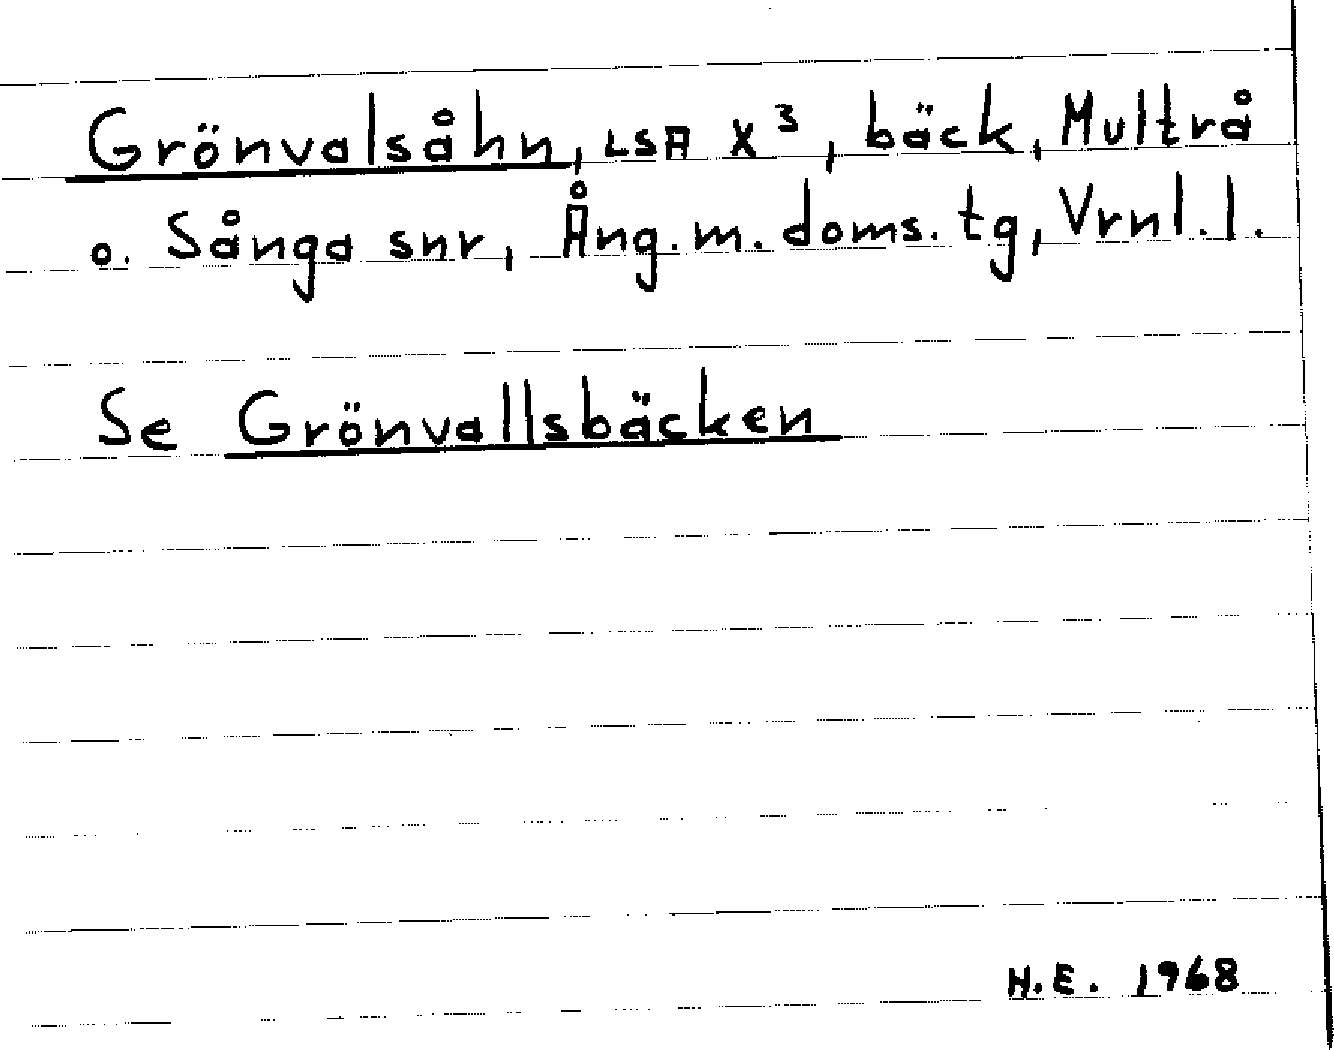 Grönvalsåhn, LSA X³, bäck, Multrå
o. Sånga snr, Ång. m. doms. tg, Vrnl. l.
Se Grönvallsbäcken
H.E. 1968